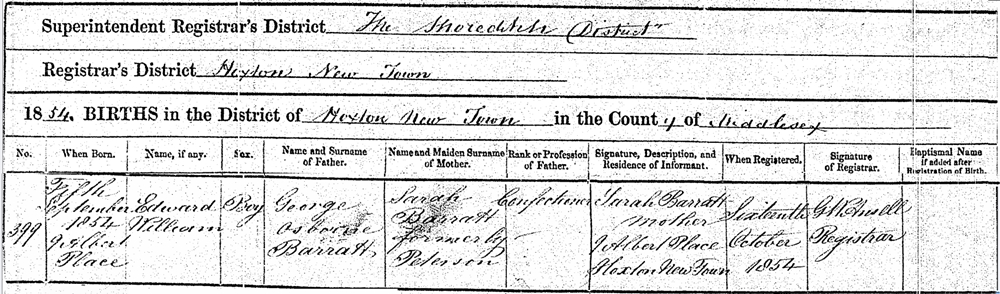 Superintendent Registrar's District The Shoreditch District
Registrar's District Hoxton New Town
1854. BIRTHS in the District of Hoxton New Town in the County of Middlesex
No.
When Born.
Name, if any.
Sex.
Name and Surname
of Father.
Name and Maiden Surname
of Mother.
Rank or Profession
of Father.
Signature, Description, and
Residence of Informant.
When Registered.
Signature
of Registrar.
Baptismal Name
if added after
Registration of Birth.
399
Fifth
September
1854
Albert
Place
Edward
William
Boy
George
Osborne
Barratt
Sarah
Barratt
formerly
Peterson
Confectioner
Sarah Barratt
Mother
Albert Place
Hoxton New Town
Sixteenth
October
1854
Registrar